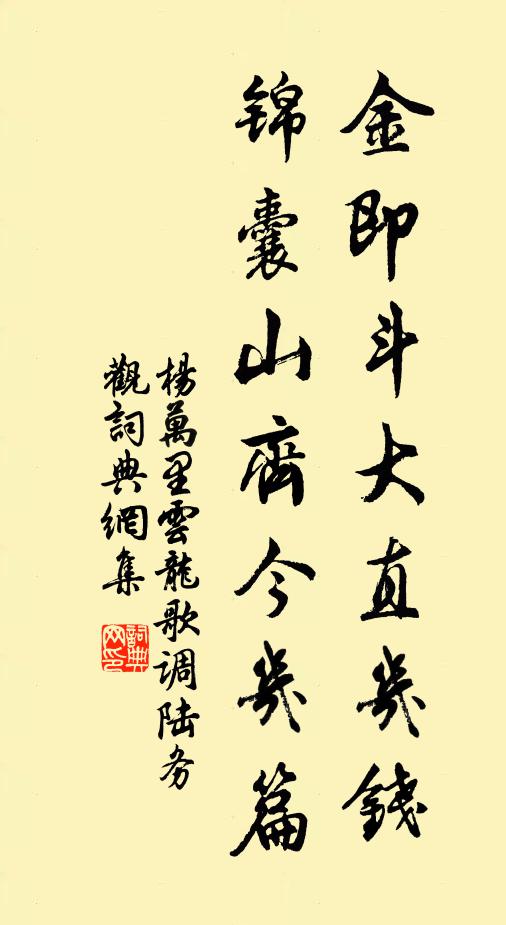 金即斗大直幾錢
錦囊山齊今幾篇
楊萬里雲龍歌调陆务
觀詞典網集
詞典
网印